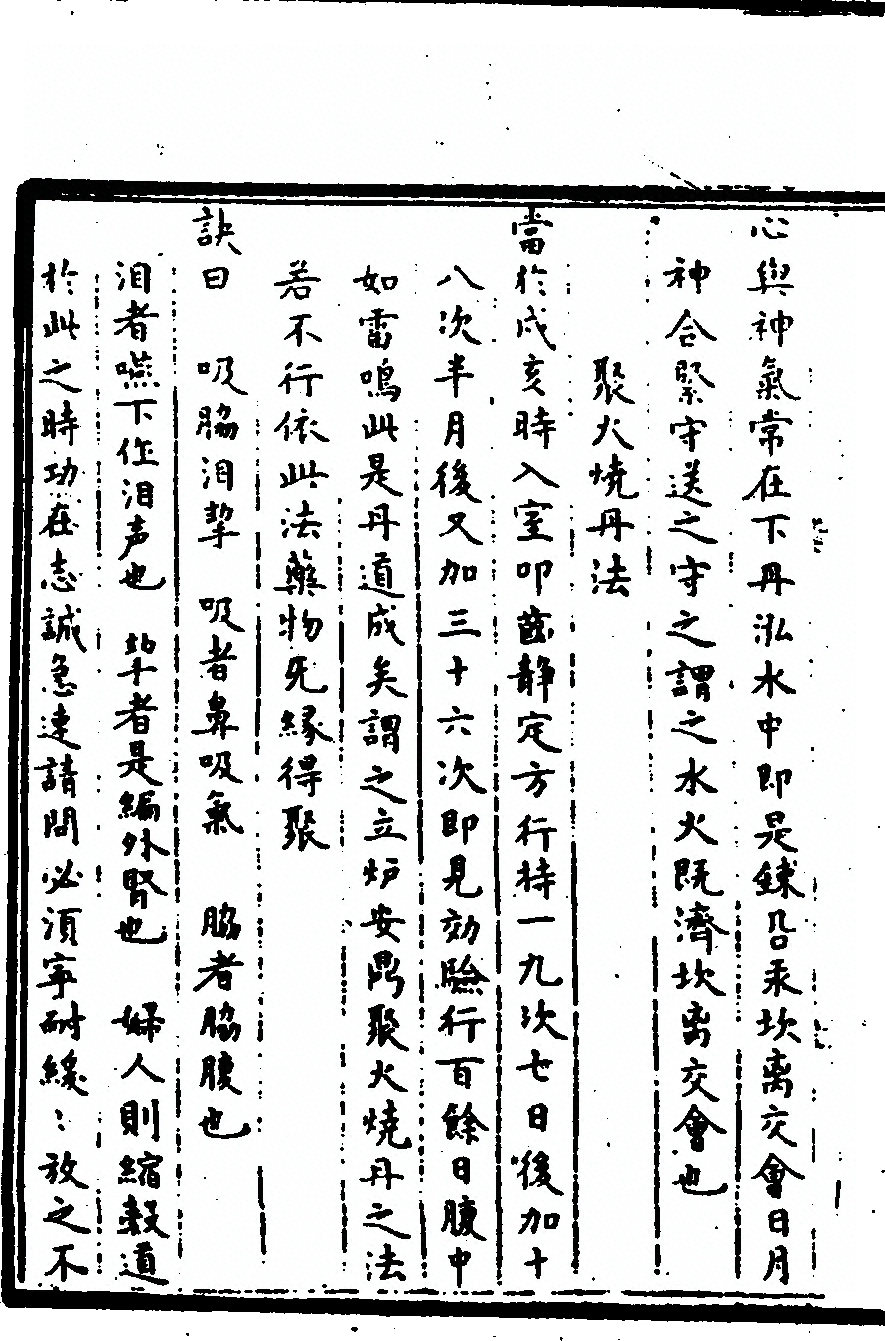 心與神氣常在下丹泓水中即是鍊鈆汞坎离交會日月
神合緊守送之守之謂之水火既濟坎离交會也
聚火燒丹法
當於戌亥時入室叩齒静定方行持一九次七日後加十
八次半月後又加三十六次即見効驗行百餘日腹中
如雷鳴此是丹道成矣謂之立炉安鼎聚火燒丹之法
若不行依此法藥物旡緣得聚
訣曰 吸脇泪掔 吸者鼻吸氣 脇者脇腹也
泪者嚥下作泪声也 掔者是縮外腎也 婦人則縮穀道
於此之時功在志誠急速請問必須寕耐緩〻放之不